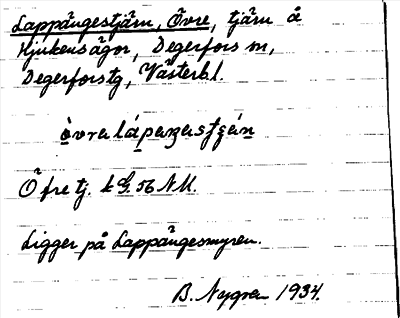 Lappängestjärn, Övre, tjärn å
Hjukensågor, Degerfors sn,
Degerforstg, Västerbl.
Öfre tj. k G. 56 NM.
Ligger på Lappängesmyren.
B. Nygren 1934.